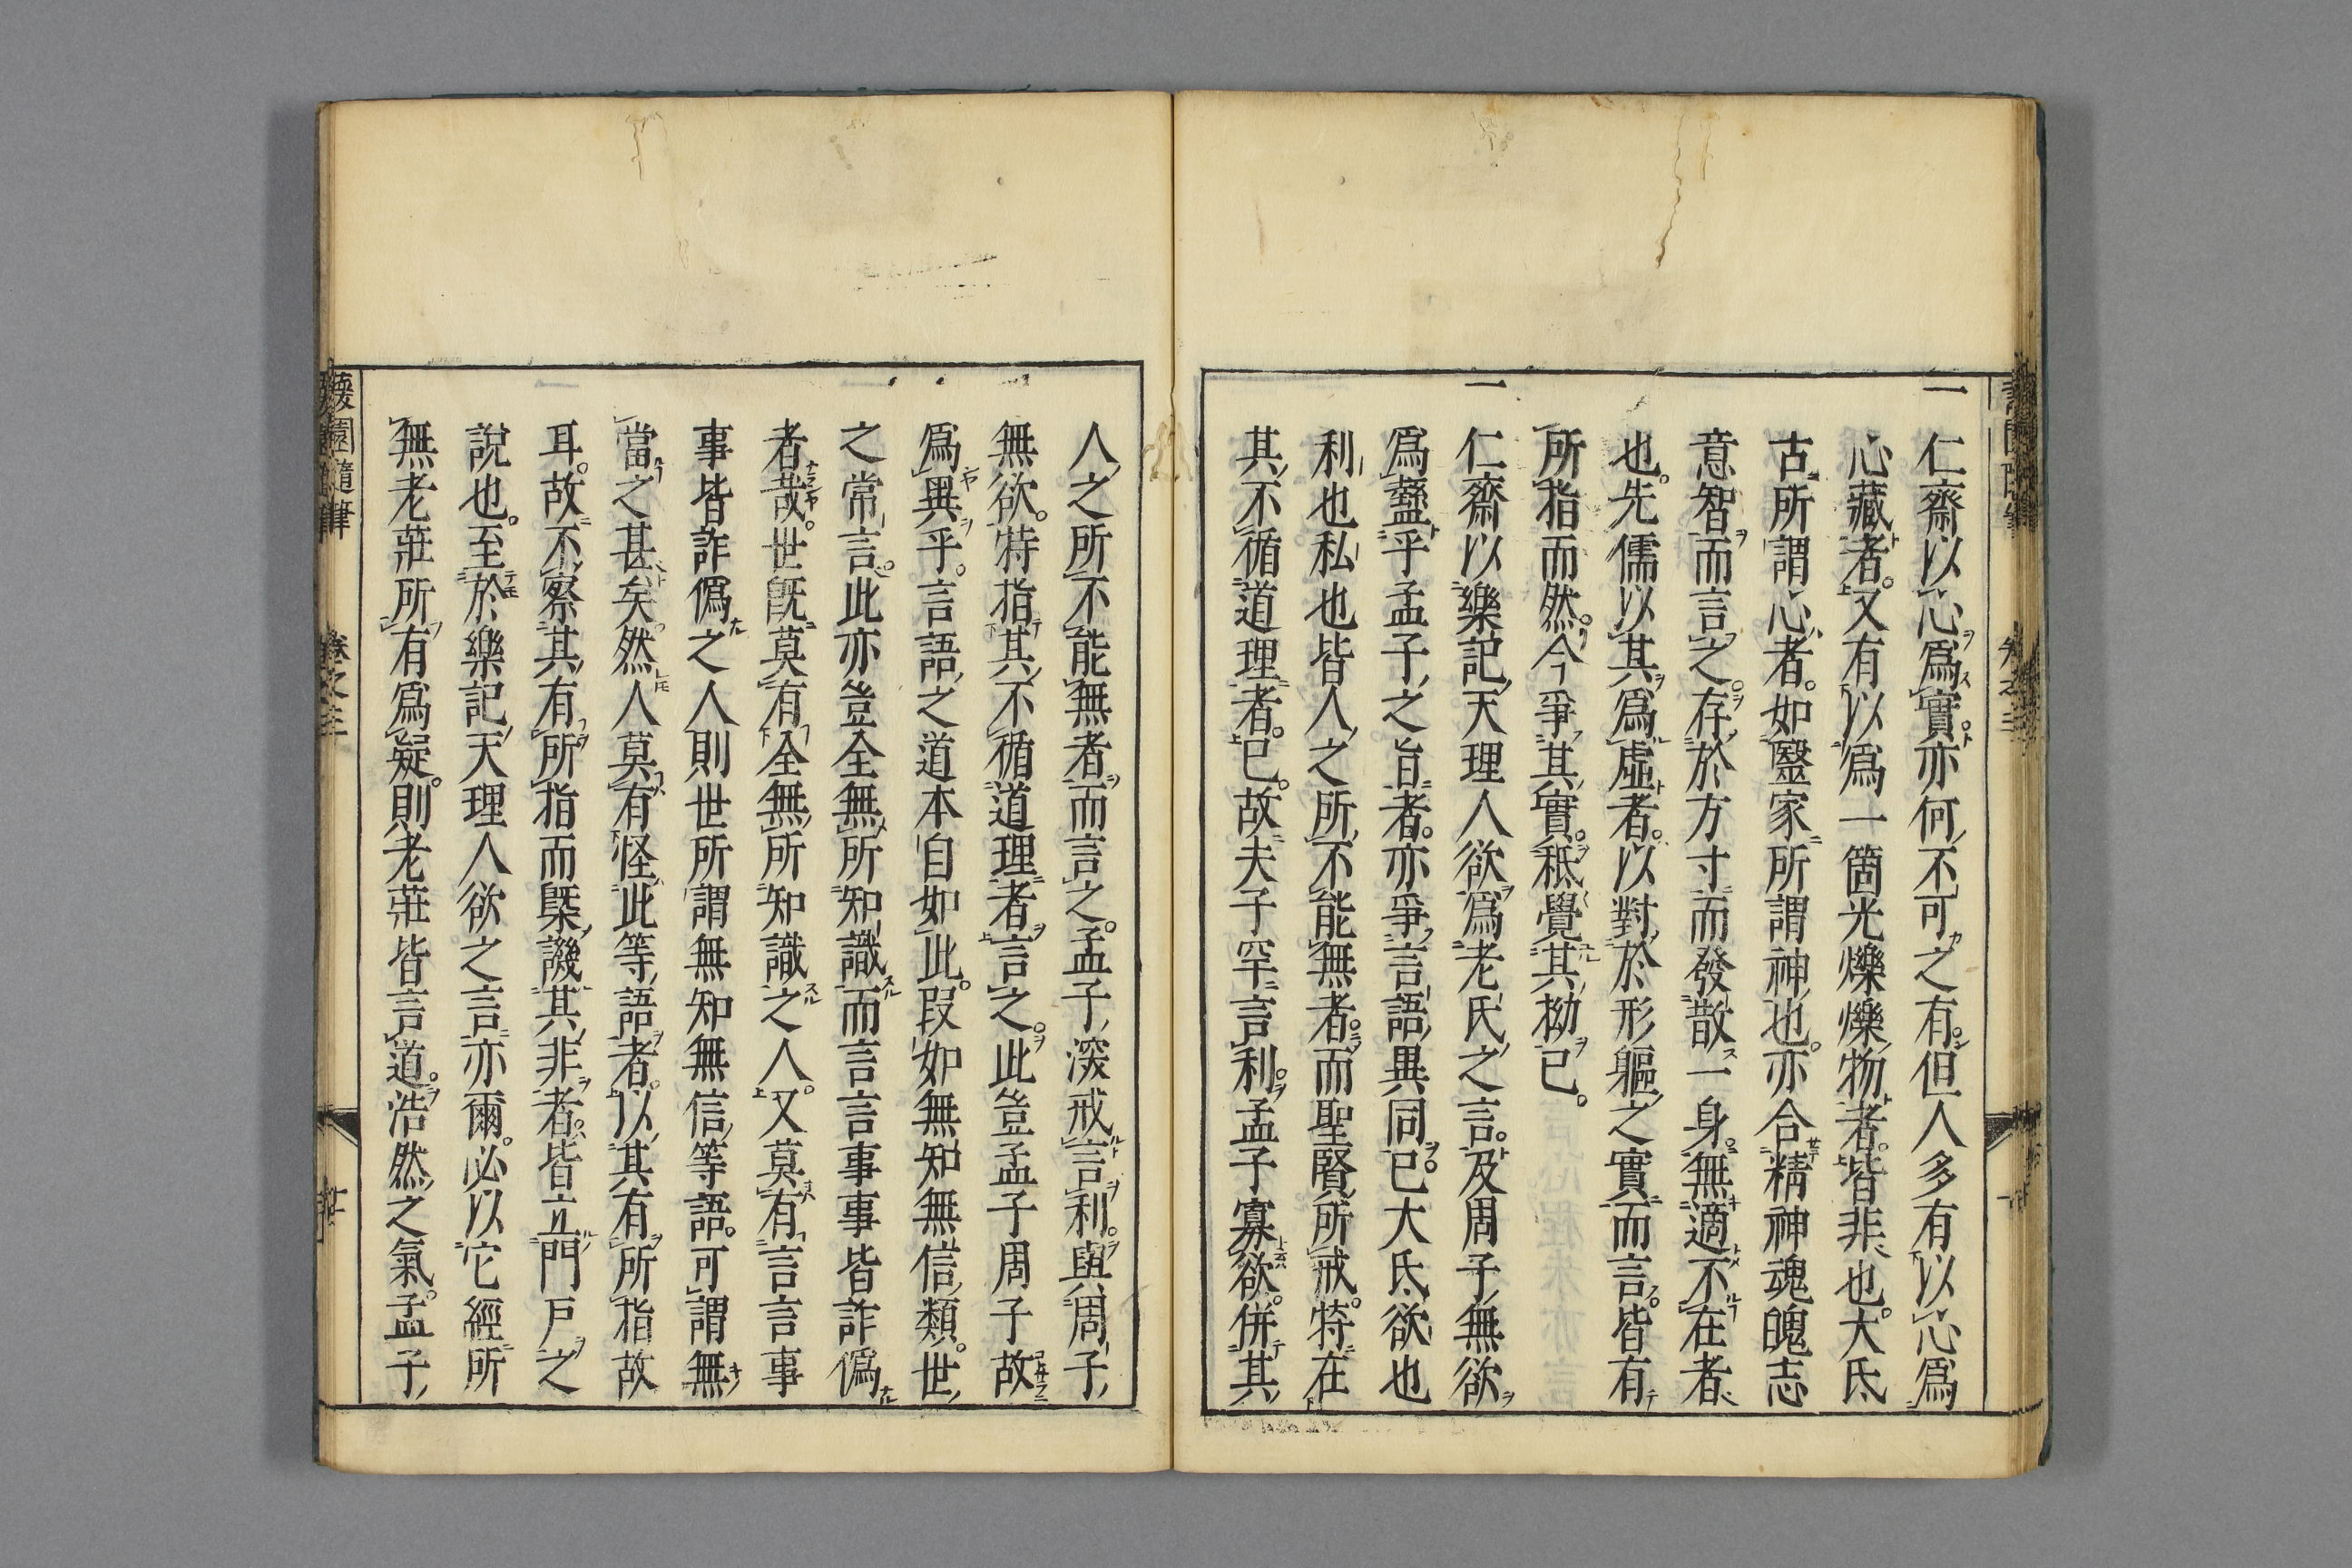 一 仁齋以心爲實。亦何不可之有。但人多有以心爲
心藏者。又有以爲一箇光爍爍物者。皆非也。大氐
古所謂心者。如醫家所謂神也。亦合精神魂魄志
意智而言之。存於方寸而發散一身。無適不在者
也。先儒以其爲虛者。以對於形軀之實而言。皆有
所指而然。今爭其實。秪覺其拗已。
一 仁齋以樂記天理人欲爲老氏之言。及周子無欲
爲蠱乎孟子之旨者。亦爭言語異同已。大氐欲也
利也私也皆人之所不能無者。而聖賢所戒。特在
其不循道理者已。故夫子罕言利。孟子寡欲。併其
人之所不能無者而言之。孟子深戒言利。與周子
無欲。特指其不循道理者言之。此豈孟子周子故
爲異乎。言語之道本自如此。叚如無知無信類。世
之常言。此亦豈全無所知識而言言事事皆詐僞
者哉。世既莫有全無所知識之人。又莫有言言事
事皆詐僞之人則世所謂無知無信等語。可謂無
當之甚矣。然人莫有怪此等語者。以其有所指故
耳。故不察其有所指而槩譏其非者。皆立門戶之
說也。至於樂記天理人欲之言亦爾。必以它經所
無老莊所有爲疑。則老莊皆言道。浩然之氣。孟子
蘐園隨筆 卷之三